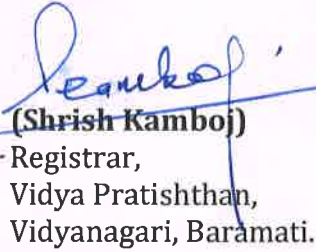 (Shrish Kamboj)
Registrar,
Vidya Pratishthan,
Vidyanagari, Baramati.